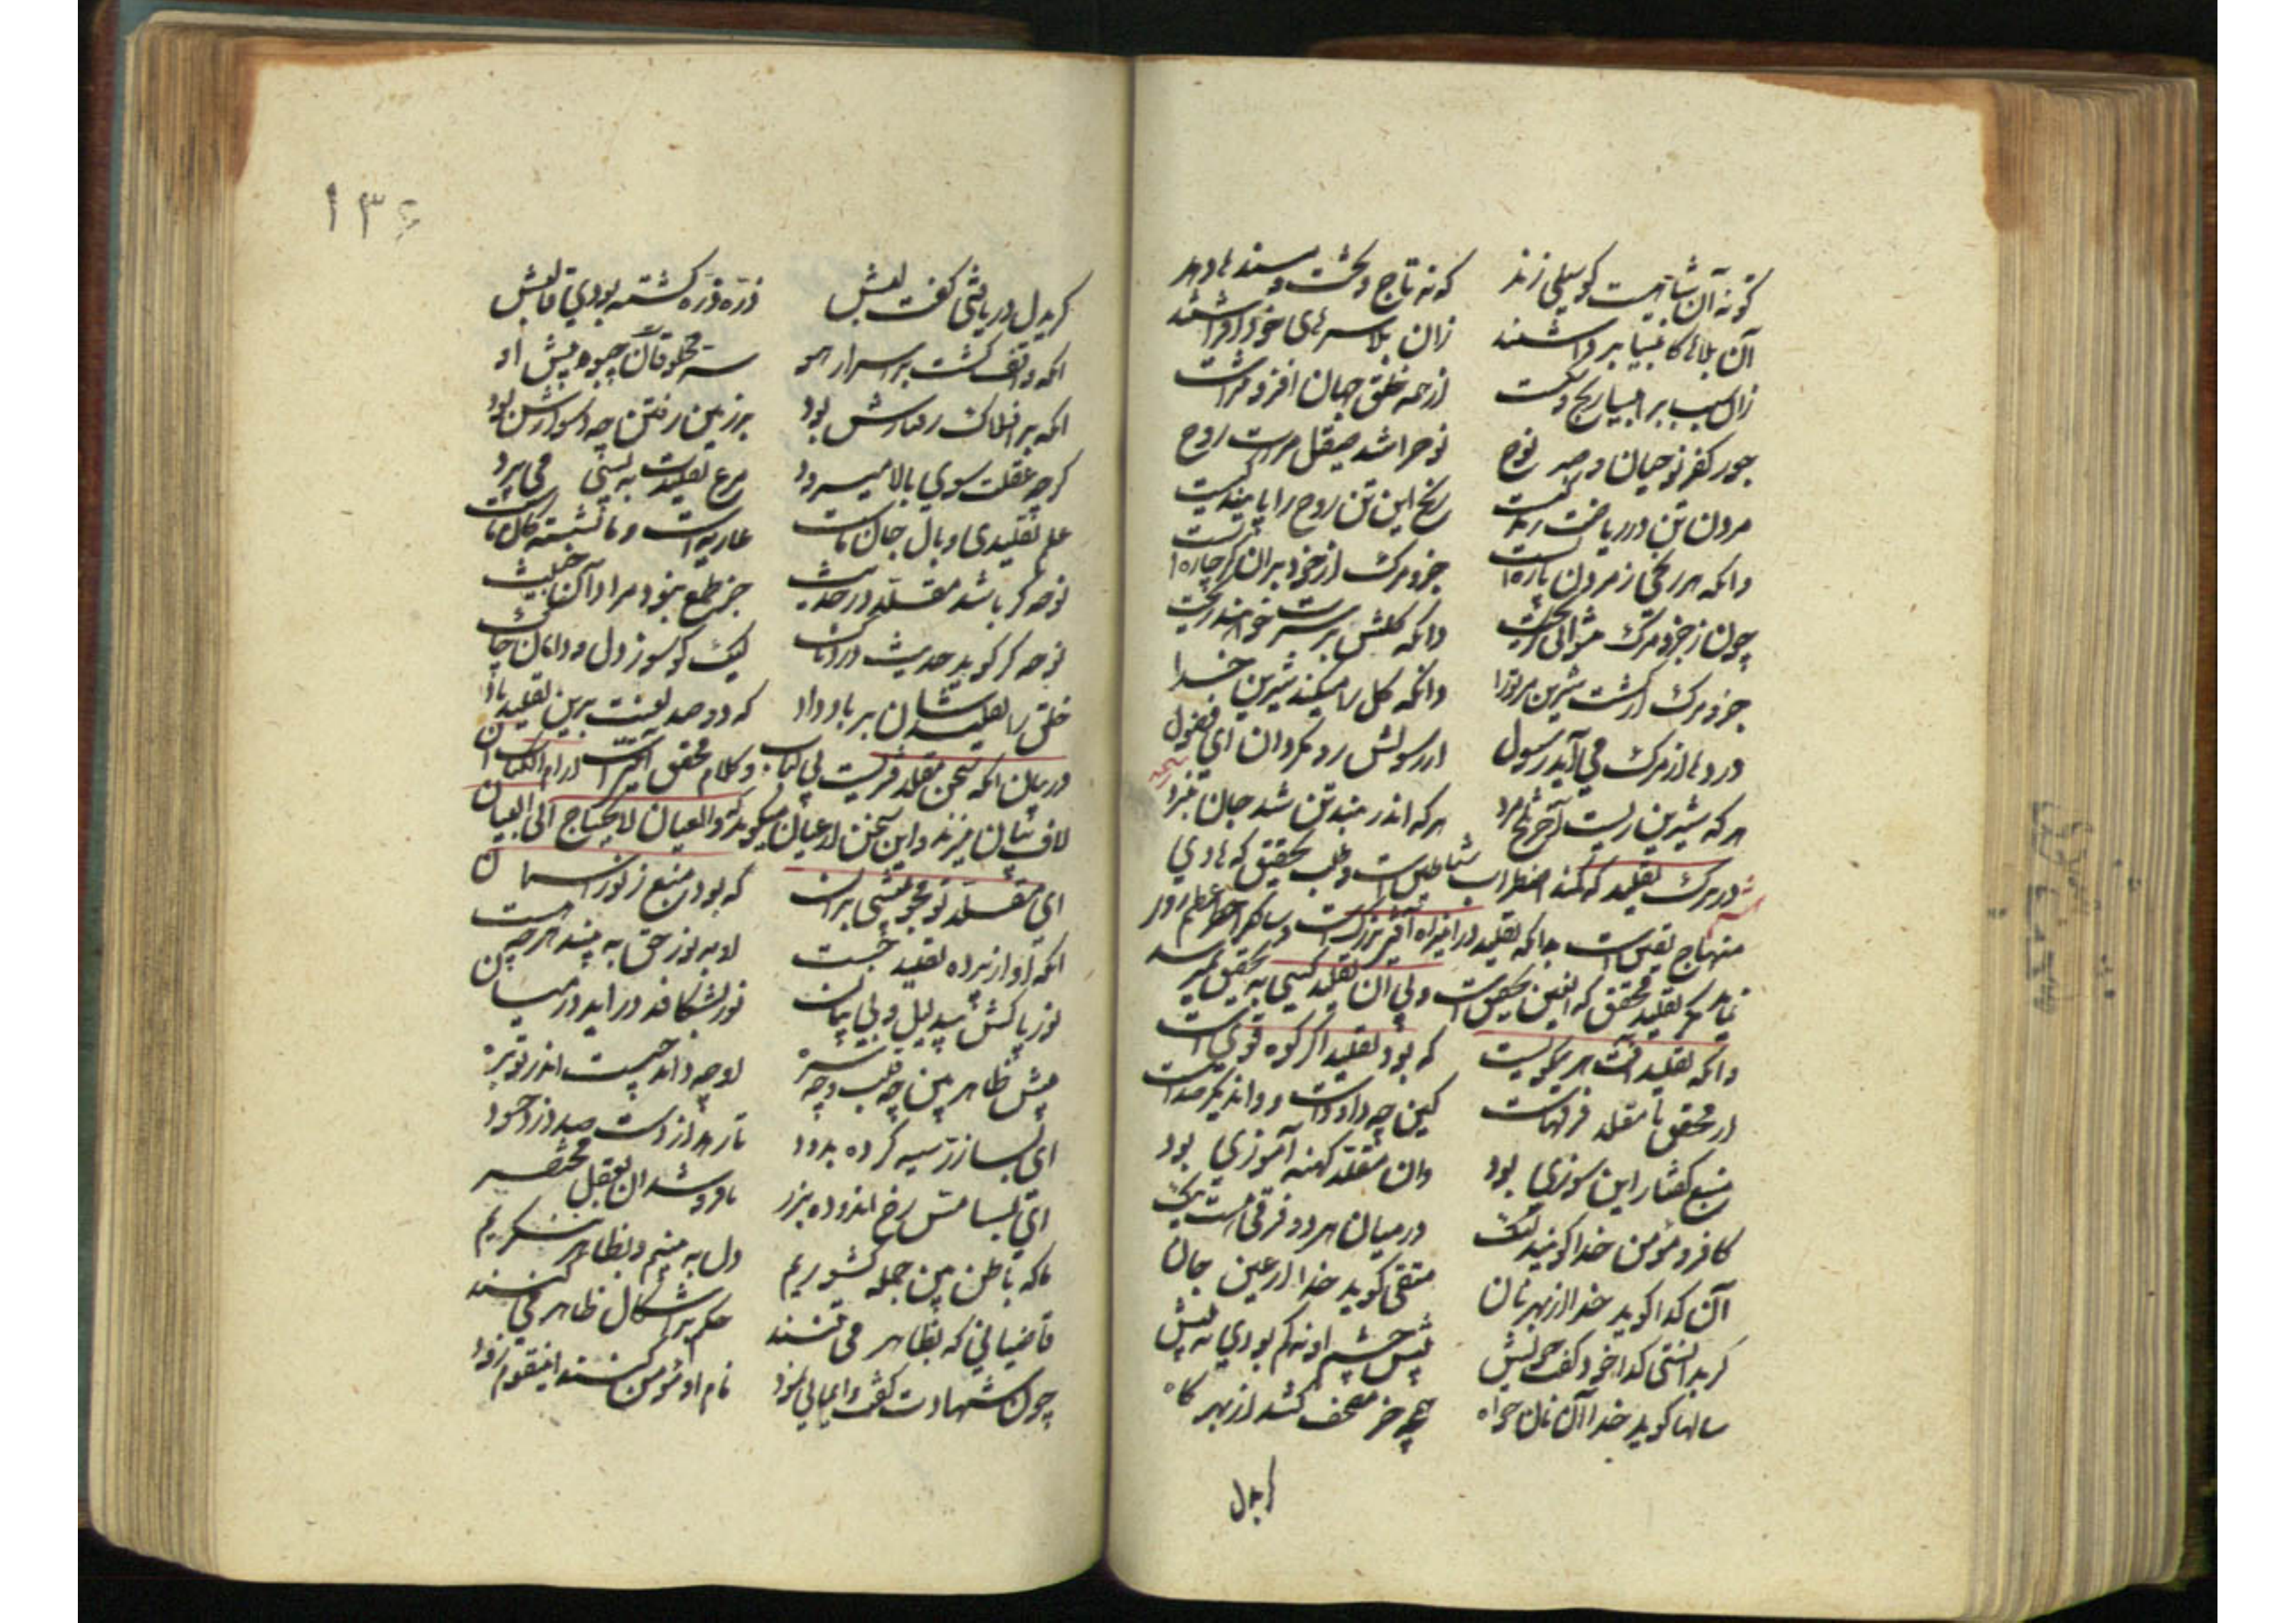 کو نه آن شاهیست کو سیلی زند که نه تاج و تخت و مسندها دهد
آن بلاها کانبیا برداشتند زان بلا سرهای خود افراشتند
زان سبب بر انبیا رنج و شکست از همه خلق جهان افزونتراست
جور کفر نوحیان و صبر نوح نوح را شد صیقل مرآت روح
مردن تن در ریاضت زندگیست رنج این تن روح را پایندگیست
دانکه هر رنجی ز مردن پاره است جزو مرک از خود بران کر چاره است
چون ز جزو مرک نتوانی کریخت دانکه کلش بر سرت خواهند ریخت
جزو مرک ار کشت شیرین مر ترا دانکه کل را میکند شیرین خدا
دردها از مرک می آید رسول از رسولش رو مکردان ای فضول
هر که شیرین زیست آخر تلخ مرد هر که اندر بند تن شد جان نبرد
در ترک تقلید که کمند اضطراب شیاطین است و طلب تحقیق که هادی
منهاج یقین است بدانکه تقلید در این راه آفتی بزرگ است و سالک را خطر عظیم رو
نماید تقلید محقق که این عین تحقیق است و بی آن تقلید کسی به تحقیق نمیرسد
دانکه تقلید آفت هر نیکویست که بود تقلید اگر کوه قویست
از محقق تا مقلد فرقهاست کین چه داودست و وان دیکر صداست
منبع کفتار این سوزی بود وان مقلد کهنه آموزی بود
کافر و مؤمن خدا کویند لیک در میان هر دو فرقی هست نیک
آن کدا کوید خدا از بهر نان متقی کوید خدا از عین جان
کر بدانستی کدا از کفت خویش پیش چشم او نه کم بودی نه بیش
سالها کوید خدا آن نان خواه همچو خر مصحف کشد از بهر کاه
کر بدل
۱۳۶
کر بدل دریافتی کفت لبش ذره ذره کشته بودی قالبش
آنکه واقف کشت بر اسرار هو سر مخلوقات چبود پیش او
آنکه بر افلاک رفتارش بود بر زمین رفتن چه دشوارش بود
کرچه عقلت سوی بالا میپرد مرغ تقلیدت به پستی می پرد
علم تقلیدی وبال جان ماست عاریه است و ما نشسته کان ماست
نوحه کر باشد مقلد در حدیث جز طمع نبود مراد آن خبیث
نوحه کر کوید حدیث دردناک لیک کو سوز دل و دامان چاک
خلق را تقلیدشان بر باد داد که دو صد لعنت برین تقلید باد
در بیان آنکه سخن مقلد فرعیست بی لباب و کلام محقق از ام الکتاب آن
لاف بیان میزند و این سخن از عیان میکوید و العیان لا یحتاج الی البیان
ای مقلد تو مجو پیشی بران که بود منبع ز نور آسمان
آنکه او از پرده تقلید جست او به نور حق به بیند هرچه هست
نور پاکش بیدلیل و بی بیان نور بشکافد در آید در میان
پیش ظاهر بین چه قلب و چه سره او چه داند چیست اندر قوصره
ای بسا زر سیه کرده بدود تا رهد از دست هر دزد حسود
ای بسا مس رخ اندوده بزر تا فروشد آن بعقل مختصر
ما که باطن بین جمله کشوریم دل به بینیم و بظاهر ننکریم
قاضیانی که بظاهر می تنند حکم بر اشکال ظاهر می کنند
چون شهادت کفت و ایمانی نمود نام او مؤمن کنند این قوم زود